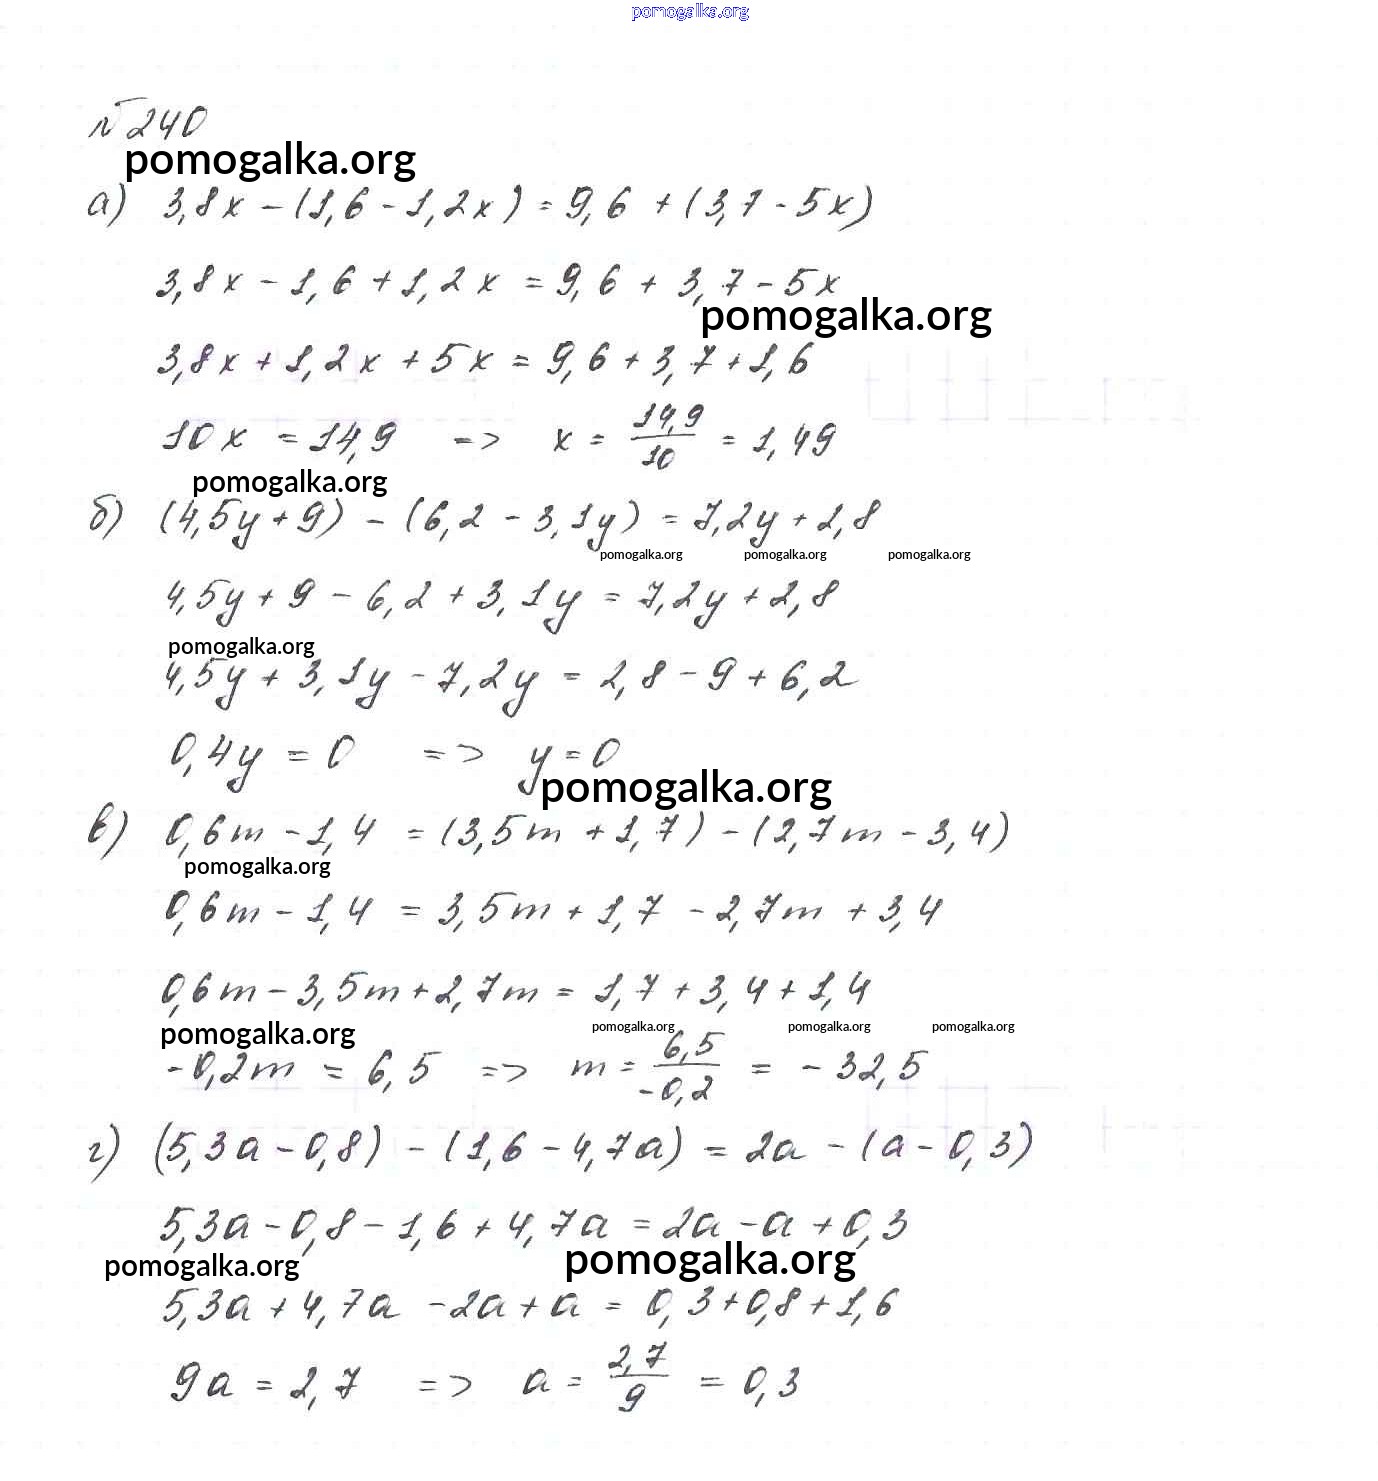 pomogalka.org
№ 240
pomogalka.org
а) 3,8x - (1,6 - 1,2x) = 9,6 + (3,7 - 5x)
3,8x - 1,6 + 1,2x = 9,6 + 3,7 - 5x
pomogalka.org
3,8x + 1,2x + 5x = 9,6 + 3,7 + 1,6
10x = 14,9 => x = 14,9/10 = 1,49
pomogalka.org
б) (4,5y + 9) - (6,2 - 3,1y) = 7,2y + 2,8
pomogalka.org pomogalka.org pomogalka.org
4,5y + 9 - 6,2 + 3,1y = 7,2y + 2,8
pomogalka.org
4,5y + 3,1y - 7,2y = 2,8 - 9 + 6,2
0,4y = 0 => y = 0
pomogalka.org
в) 0,6m - 1,4 = (3,5m + 1,7) - (2,7m - 3,4)
pomogalka.org
0,6m - 1,4 = 3,5m + 1,7 - 2,7m + 3,4
0,6m - 3,5m + 2,7m = 1,7 + 3,4 + 1,4
pomogalka.org pomogalka.org pomogalka.org pomogalka.org
-0,2m = 6,5 => m = 6,5/-0,2 = -32,5
г) (5,3a - 0,8) - (1,6 - 4,7a) = 2a - (a - 0,3)
5,3a - 0,8 - 1,6 + 4,7a = 2a - a + 0,3
pomogalka.org pomogalka.org
5,3a + 4,7a - 2a + a = 0,3 + 0,8 + 1,6
9a = 2,7 => a = 2,7/9 = 0,3